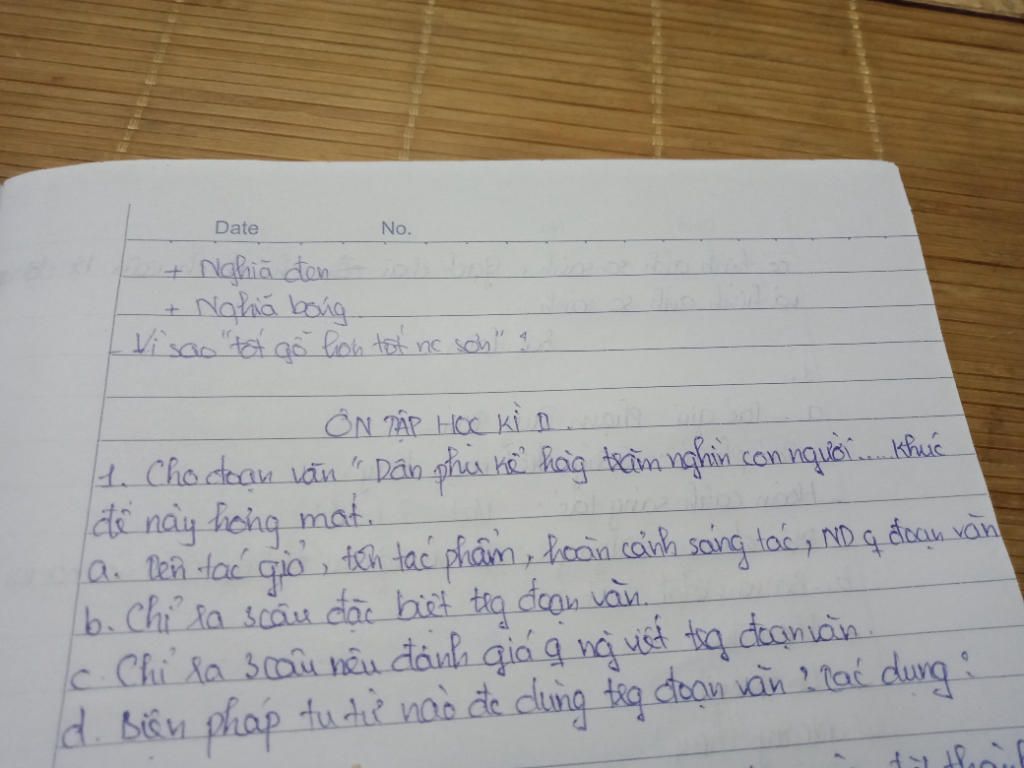 Date No.
+ Nghiã đen
+ Nghiã bóng
- Vì sao "tốt gỗ hơn tốt nc sơn" ?
ÔN TẬP HỌC KÌ II.
1. Cho đoạn văn "Dân phu kể hàg trăm nghìn con người.... Khúc
đê này hỏng mất.
a. Tên tác giả, tên tác phẩm, hoàn cảnh sáng tác, ND q đoạn văn
b. Chỉ ra 3 câu đặc biệt trg đoạn văn.
c. Chỉ ra 3 câu nêu đánh giá q ng viết trg đoạn văn.
d. Biện pháp tu từ nào đc dùng trg đoạn văn? Tác dụng?